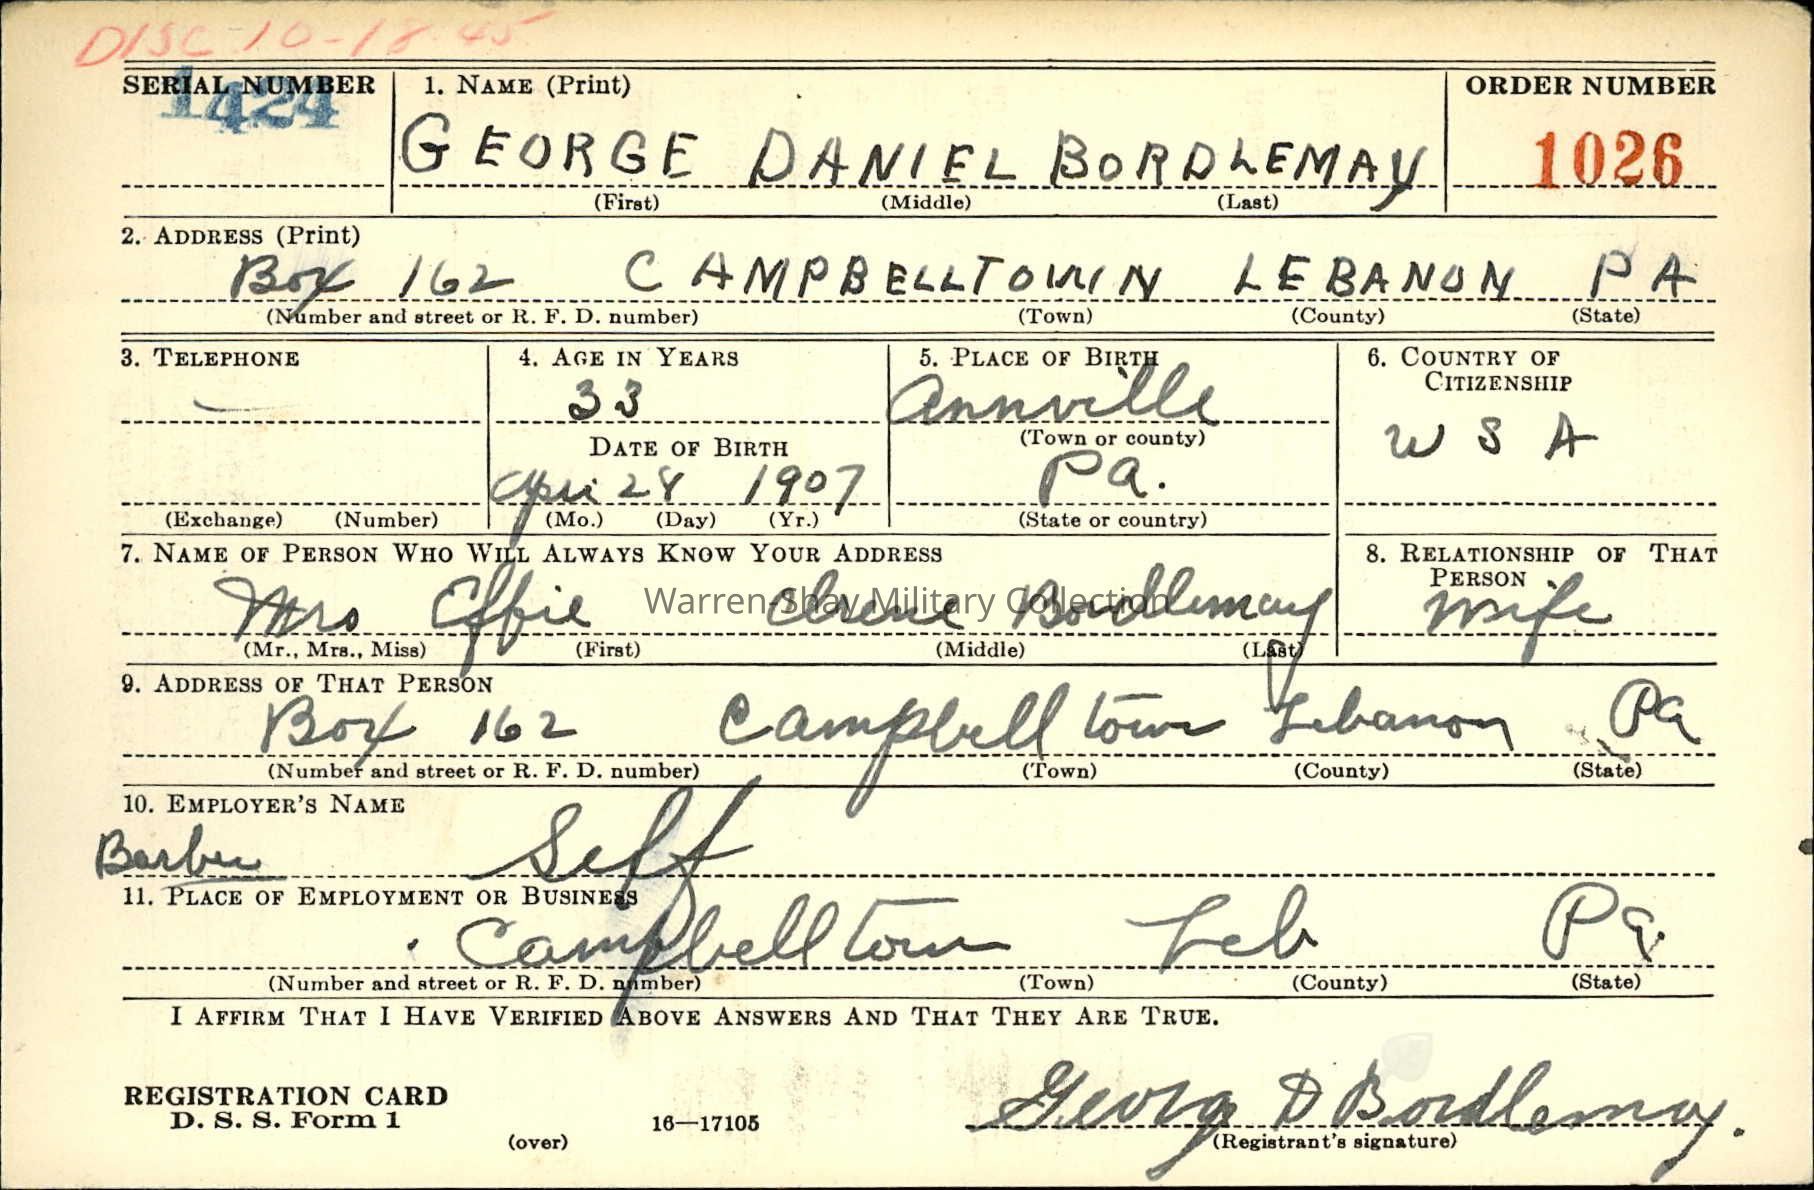 DISC 10-18-45
SERIAL NUMBER 1. NAME (Print) ORDER NUMBER
1424
GEORGE DANIEL BORDLEMAY 1026
(First) (Middle) (Last)
2. ADDRESS (Print)
Box 162 CAMPBELLTOWN LEBANON PA
(Number and street or R. F. D. number) (Town) (County) (State)
3. TELEPHONE 4. AGE IN YEARS 5. PLACE OF BIRTH 6. COUNTRY OF
CITIZENSHIP
33 Annville
(Town or county) U S A
DATE OF BIRTH
Apri 28 1907 Pa.
(Exchange) (Number) (Mo.) (Day) (Yr.) (State or country)
7. NAME OF PERSON WHO WILL ALWAYS KNOW YOUR ADDRESS 8. RELATIONSHIP OF THAT
PERSON
Mrs Effie Irene Bordlemay Wife
Warren-Shay Military Collection
(Mr., Mrs., Miss) (First) (Middle) (Last)
9. ADDRESS OF THAT PERSON
Box 162 Campbelltown Lebanon Pa
(Number and street or R. F. D. number) (Town) (County) (State)
10. EMPLOYER'S NAME
Barber Self
11. PLACE OF EMPLOYMENT OR BUSINESS
Campbelltown Leb Pa.
(Number and street or R. F. D. number) (Town) (County) (State)
I AFFIRM THAT I HAVE VERIFIED ABOVE ANSWERS AND THAT THEY ARE TRUE.
REGISTRATION CARD
D. S. S. Form 1 16—17105 George D Bordlemay.
(over) (Registrant's signature)